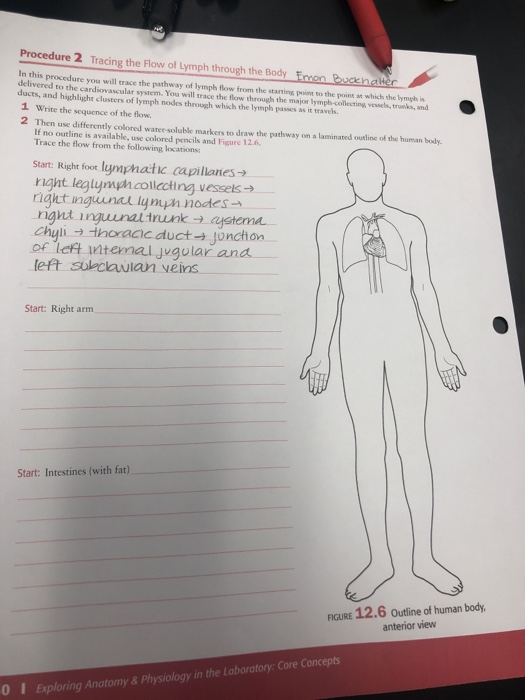 Procedure 2 Tracing the Flow of Lymph through the Body Emon Buckhalter
In this procedure you will trace the pathway of lymph flow from the starting point to the point at which the lymph is
delivered to the cardiovascular system. You will trace the flow through the major lymph-collecting vessels, trunks, and
ducts, and highlight clusters of lymph nodes through which the lymph passes as it travels.
1 Write the sequence of the flow.
2 Then use differently colored water-soluble markers to draw the pathway on a laminated outline of the human body.
If no outline is available, use colored pencils and Figure 12.6.
Trace the flow from the following locations:
Start: Right foot lymphatic capillaries →
right leg lymph collecting vessels →
right inguinal lymph nodes →
right inguinal trunk → cysterna
chyli → thoracic duct → junction
of left internal jugular and
left subclavian veins
Start: Right arm
Start: Intestines (with fat)
FIGURE 12.6 Outline of human body,
anterior view
0 | Exploring Anatomy & Physiology in the Laboratory: Core Concepts